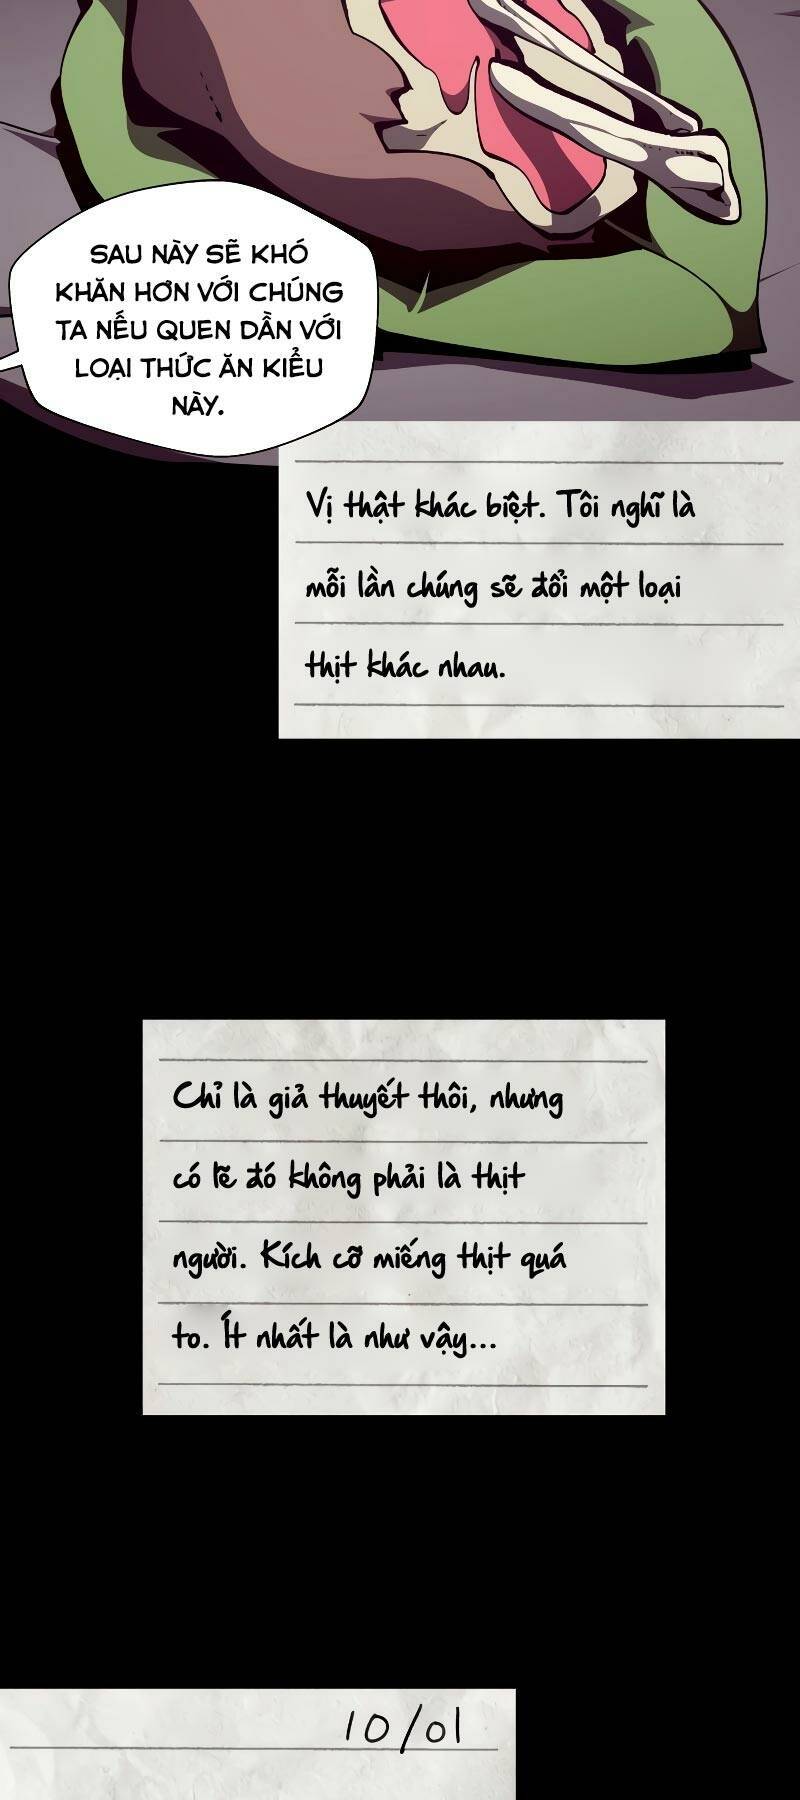 SAU NÀY SẼ KHÓ
KHĂN HƠN VỚI CHÚNG
TA NẾU QUEN DẦN VỚI
LOẠI THỨC ĂN KIỂU
NÀY.
Vị thật khác biệt. Tôi nghĩ là
mỗi lần chúng sẽ đổi một loại
thịt khác nhau.
Chỉ là giả thuyết thôi, nhưng
có lẽ đó không phải là thịt
người. Kích cỡ miếng thịt quá
to. Ít nhất là như vậy...
10/01